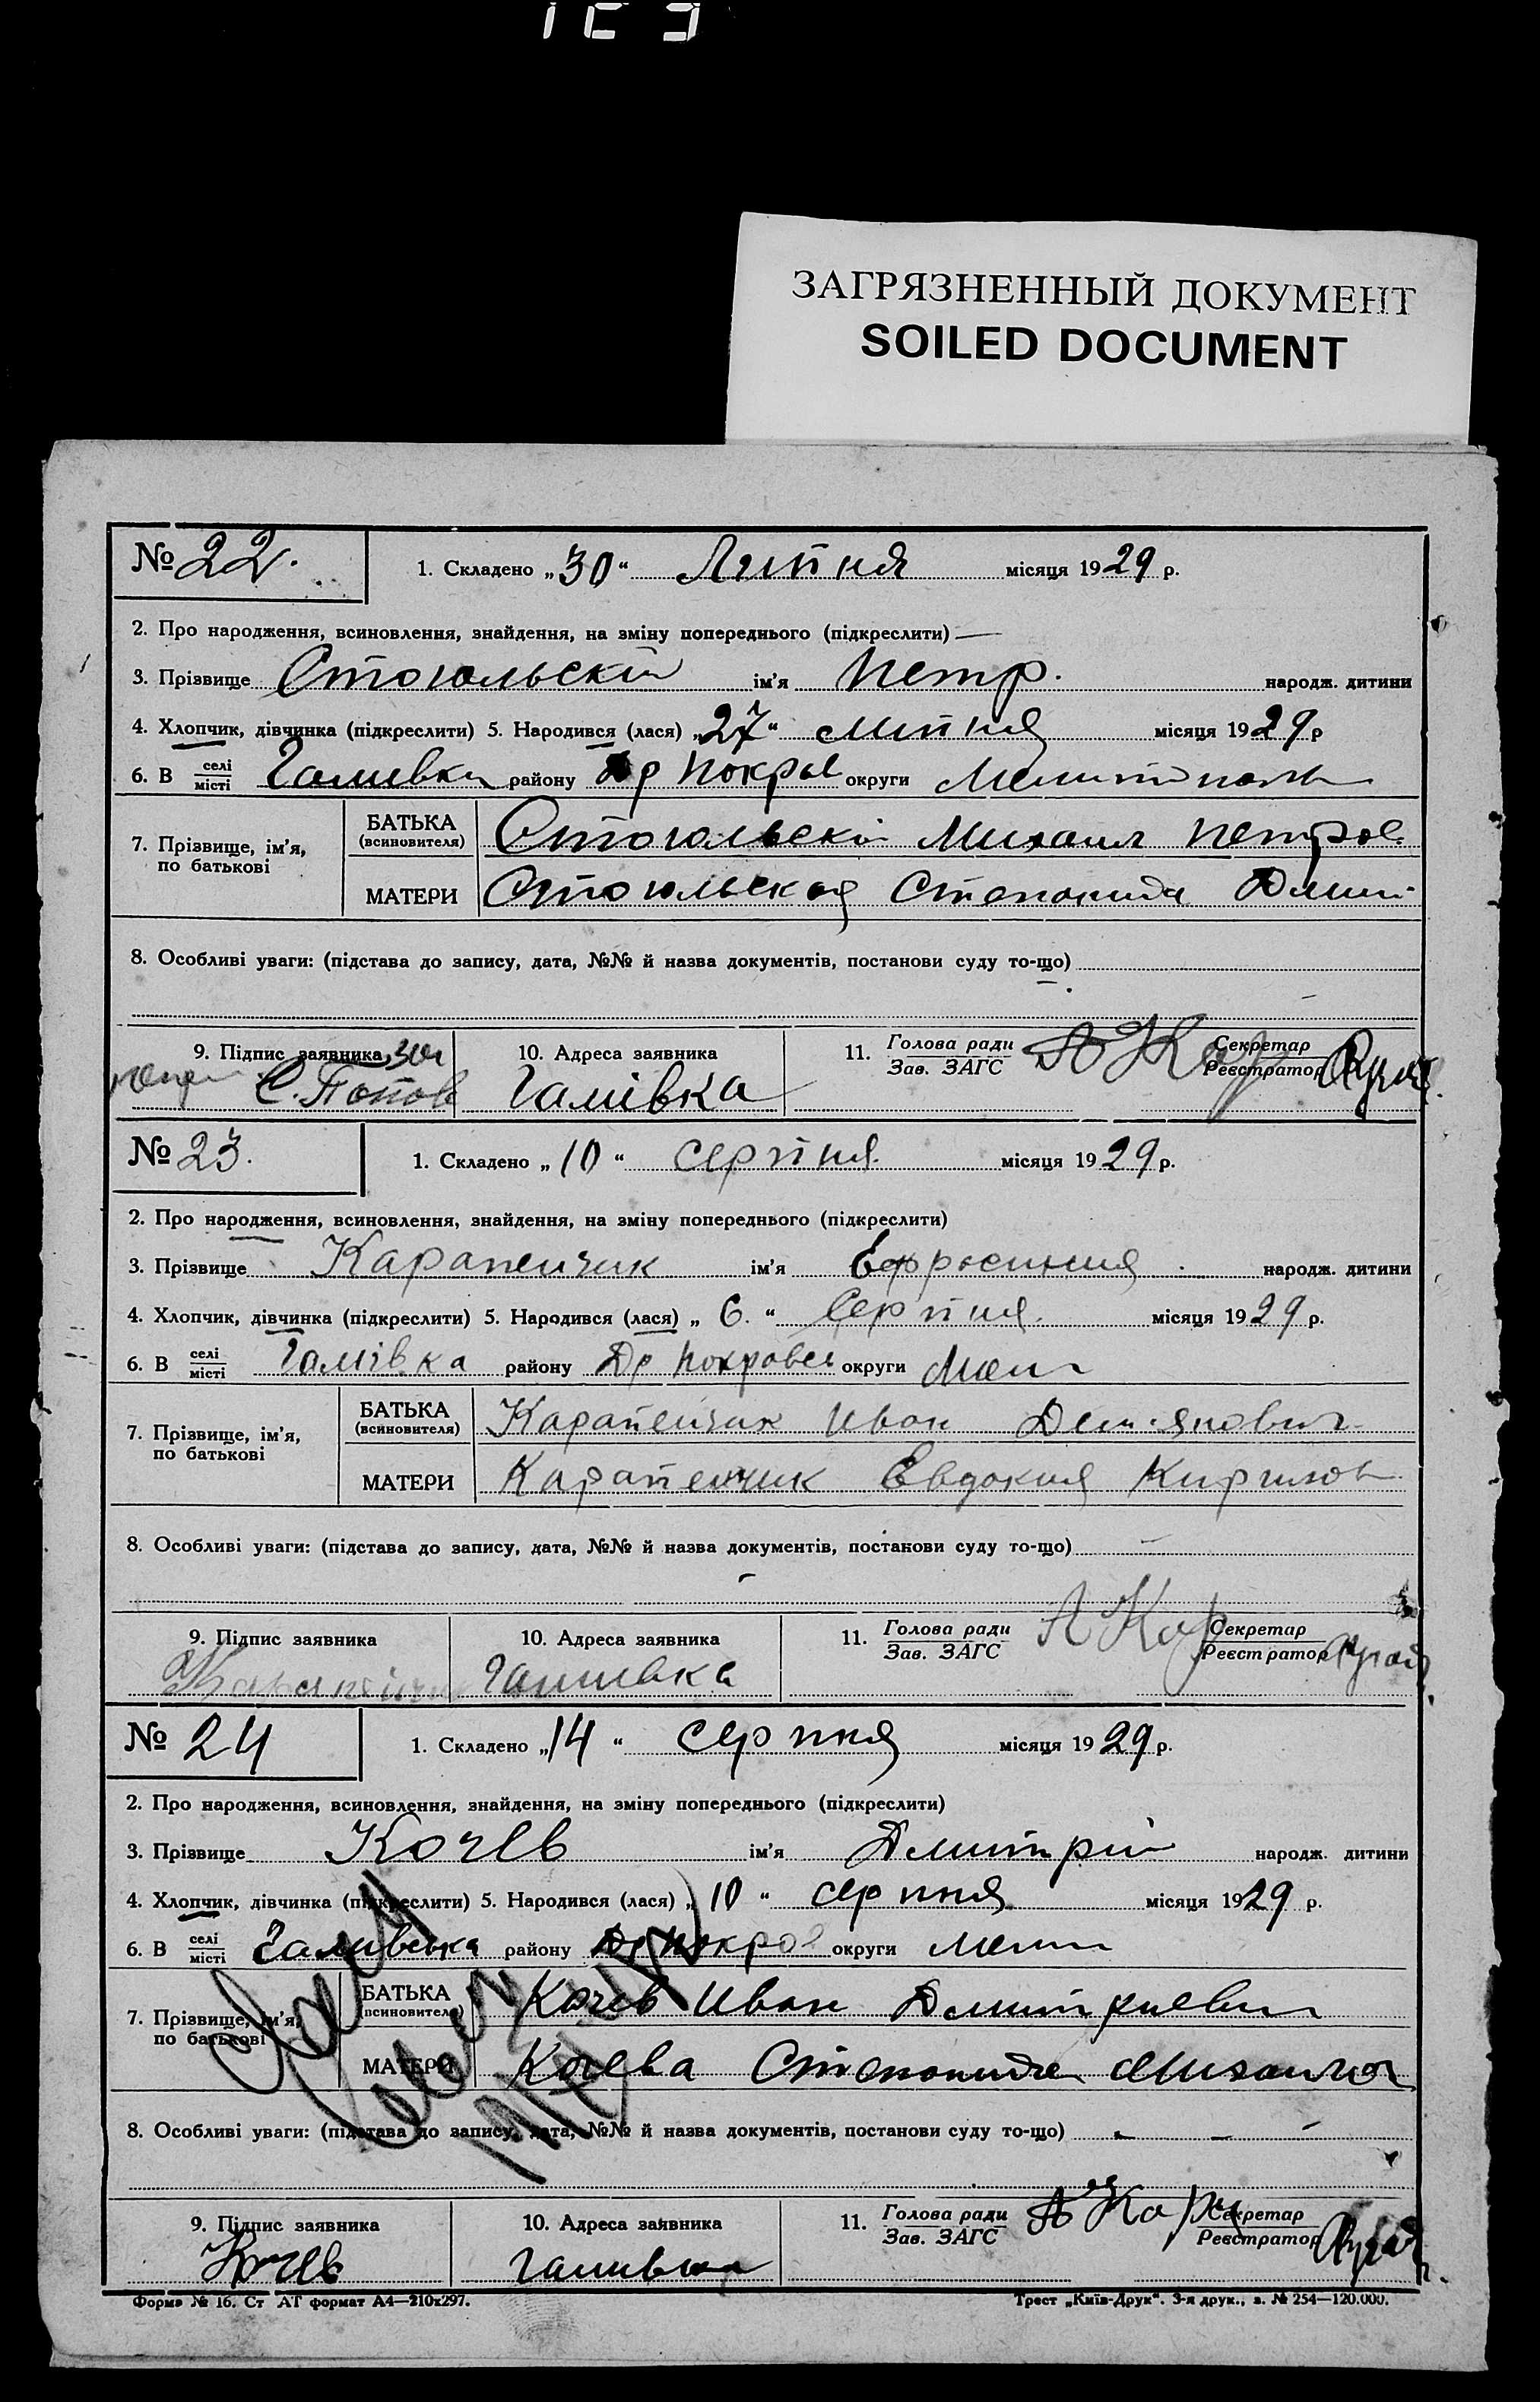 ЗАГРЯЗНЕННЫЙ ДОКУМЕНТ
SOILED DOCUMENT
№ 22.
1. Складено „30“ Липня місяця 1929 р.
2. Про народження, всиновлення, знайдення, на зміну попереднього (підкреслити)
3. Прізвище Стогольскій ім'я Петр. народж. дитини
4. Хлопчик, дівчинка (підкреслити) 5. Народився (лася) „27“ Липня місяця 1929 р
6. В селі місті Гамивка району Др Покров округи
7. Прізвище, ім'я, по батькові
БАТЬКА (всиновителя) Стогольскій Михаил Петров
МАТЕРИ Стогольская Степанида Дмит
8. Особливі уваги: (підстава до запису, дата, №№ й назва документів, постанови суду то-що)
9. Підпис заявника С. Попов
10. Адреса заявника Гамівка
11. Голова ради Зав. ЗАГС А Кар Секретар Реєстратор
№ 23.
1. Складено „10“ серпня місяця 1929 р.
2. Про народження, всиновлення, знайдення, на зміну попереднього (підкреслити)
3. Прізвище Карапейчик ім'я Ефросиния народж. дитини
4. Хлопчик, дівчинка (підкреслити) 5. Народився (лася) „6.“ Серпня місяця 1929 р.
6. В селі місті Гамівка району Др Покровсь округи Мел
7. Прізвище, ім'я, по батькові
БАТЬКА (всиновителя) Карапейчик Иван Демянович
МАТЕРИ Карапейчик Евдокия Кирилов
8. Особливі уваги: (підстава до запису, дата, №№ й назва документів, постанови суду то-що)
9. Підпис заявника
10. Адреса заявника Гамивка
11. Голова ради Зав. ЗАГС А Кар Секретар Реєстратор
№ 24
1. Складено „14“ серпня місяця 1929 р.
2. Про народження, всиновлення, знайдення, на зміну попереднього (підкреслити)
3. Прізвище Кочев ім'я Дмитрій народж. дитини
4. Хлопчик, дівчинка (підкреслити) 5. Народився (лася) „10“ серпня місяця 1929 р.
6. В селі місті району Др Покров округи Мелит
7. Прізвище, ім'я, по батькові
БАТЬКА (всиновителя) Кочев Иван Дмитриевич
МАТЕРИ Кочева Степанида Михаилов
8. Особливі уваги: (підстава до запису, дата, №№ й назва документів, постанови суду то-що)
9. Підпис заявника Кочев
10. Адреса заявника Гамивка
11. Голова ради Зав. ЗАГС А Кар Секретар Реєстратор
Форма № 16. Ст АТ формат А4—210х297.
Трест „Київ-Друк“. 3-я друк., з. № 254—120.000.